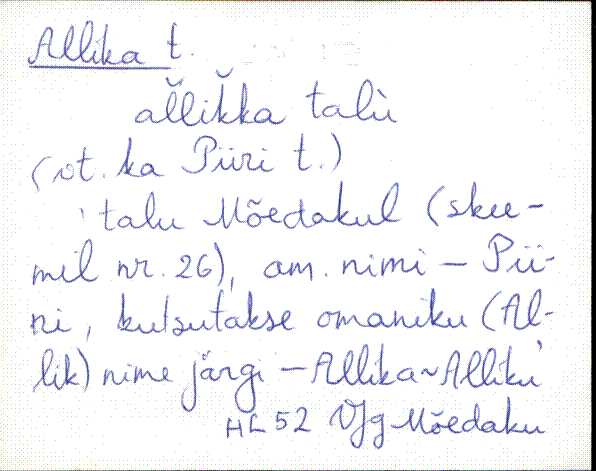 Allika t.
al̆lik̆ka talù
(vt. ka Piiri t.)
talu Mõedakul (skee-
mil nr. 26), am. nimi – Pii-
ri, kutsutakse omaniku (Al-
lik) nime järgi – Allika ~ Alliku
HL 52 VJg Mõedaku